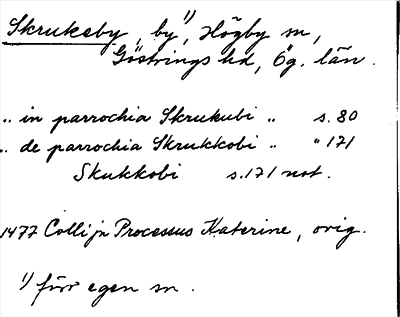 Skrukeby, by¹⁾, Högby sn,
Göstrings hd, Ög. län.
.. in parrochia Skrukubi .. s. 80
.. de parrochia Skrukkobi .. " 171
Skukkobi s. 171 not.
1477 Collijn Processus Katerine, orig.
¹⁾ förr egen sn.